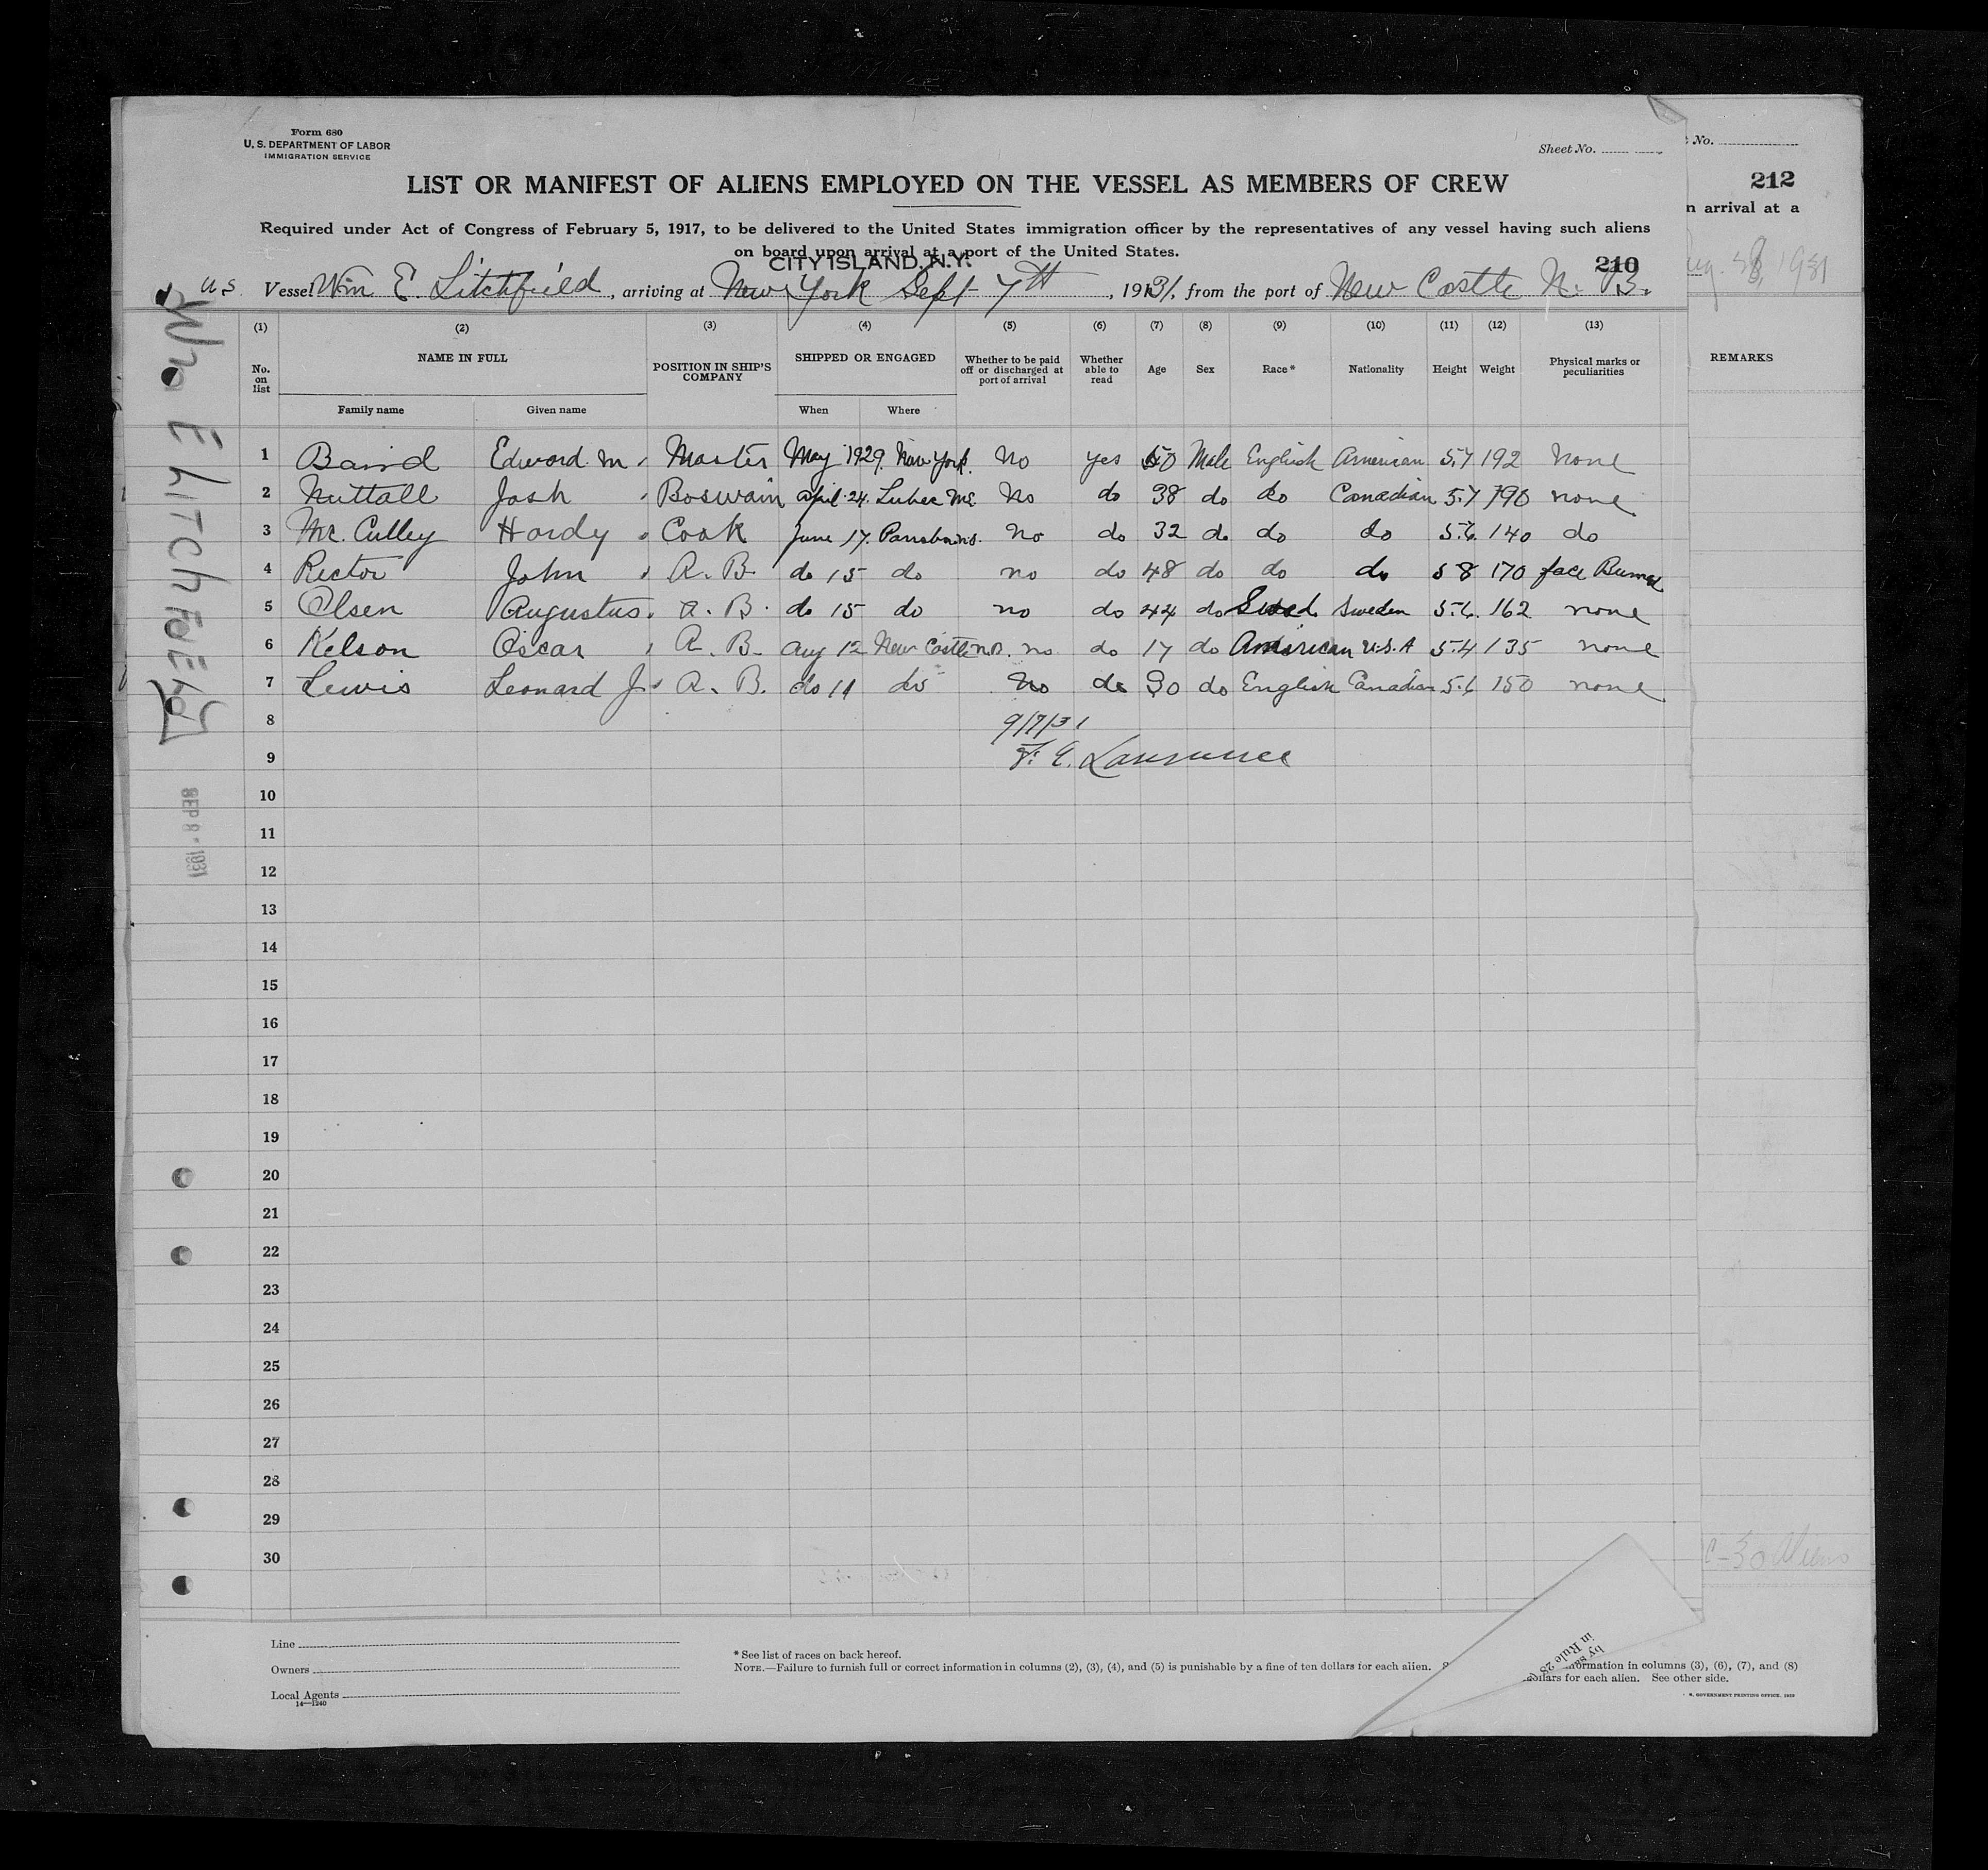 Form 680
U. S. DEPARTMENT OF LABOR
IMMIGRATION SERVICE
Sheet No.
No.
LIST OR MANIFEST OF ALIENS EMPLOYED ON THE VESSEL AS MEMBERS OF CREW
212
n arrival at a
Required under Act of Congress of February 5, 1917, to be delivered to the United States immigration officer by the representatives of any vessel having such aliens
on board upon arrival at a port of the United States.
CITY ISLAND. N.Y.
210
Aug. 28, 1931
U.S. Vessel Wm E. Litchfield, arriving at New York Sept 7th, 1931, from the port of New Castle N. B.
(1) (2) (3) (4) (5) (6) (7) (8) (9) (10) (11) (12) (13)
No. on list NAME IN FULL POSITION IN SHIP'S COMPANY SHIPPED OR ENGAGED Whether to be paid off or discharged at port of arrival Whether able to read Age Sex Race * Nationality Height Weight Physical marks or peculiarities REMARKS
Family name Given name When Where
1 Baird Edward M. Master May 1929. New York. No yes 50 Male English American 5.7 192 None
2 Nuttall Josh Boswain April 24. Lubec Me. No do 38 do do Canadian 5.7 190 none
3 Mc. Culley Hardy Cook June 17. No do 32 do do do 5.6. 140 do
4 Rector John A. B. do 15 do no do 48 do do do 5 8 170 face Burned
5 Olsen Augustus. A. B. do 15 do no do 44 do Swed. Sweden 5.6. 162 none
6 Kelson Oscar A. B. Aug 12 New Castle N.B. no do 17 do American U.S.A 5.4 135 none
7 Lewis Leonard J. A. B. do 11 do No do 30 do English Canadian 5.6 150 none
8 9/7/31
9 F. E. Lawrence
10
11
12
13
14
15
16
17
18
19
20
21
22
23
24
25
26
27
28
29
30
Wm E LITCHFIELD
SEP 8 - 1931
C-30 Aliens
Line
Owners
Local Agents
14—1240
* See list of races on back hereof.
NOTE.—Failure to furnish full or correct information in columns (2), (3), (4), and (5) is punishable by a fine of ten dollars for each alien.
information in columns (3), (6), (7), and (8)
dollars for each alien. See other side.
GOVERNMENT PRINTING OFFICE.
in Rule 28